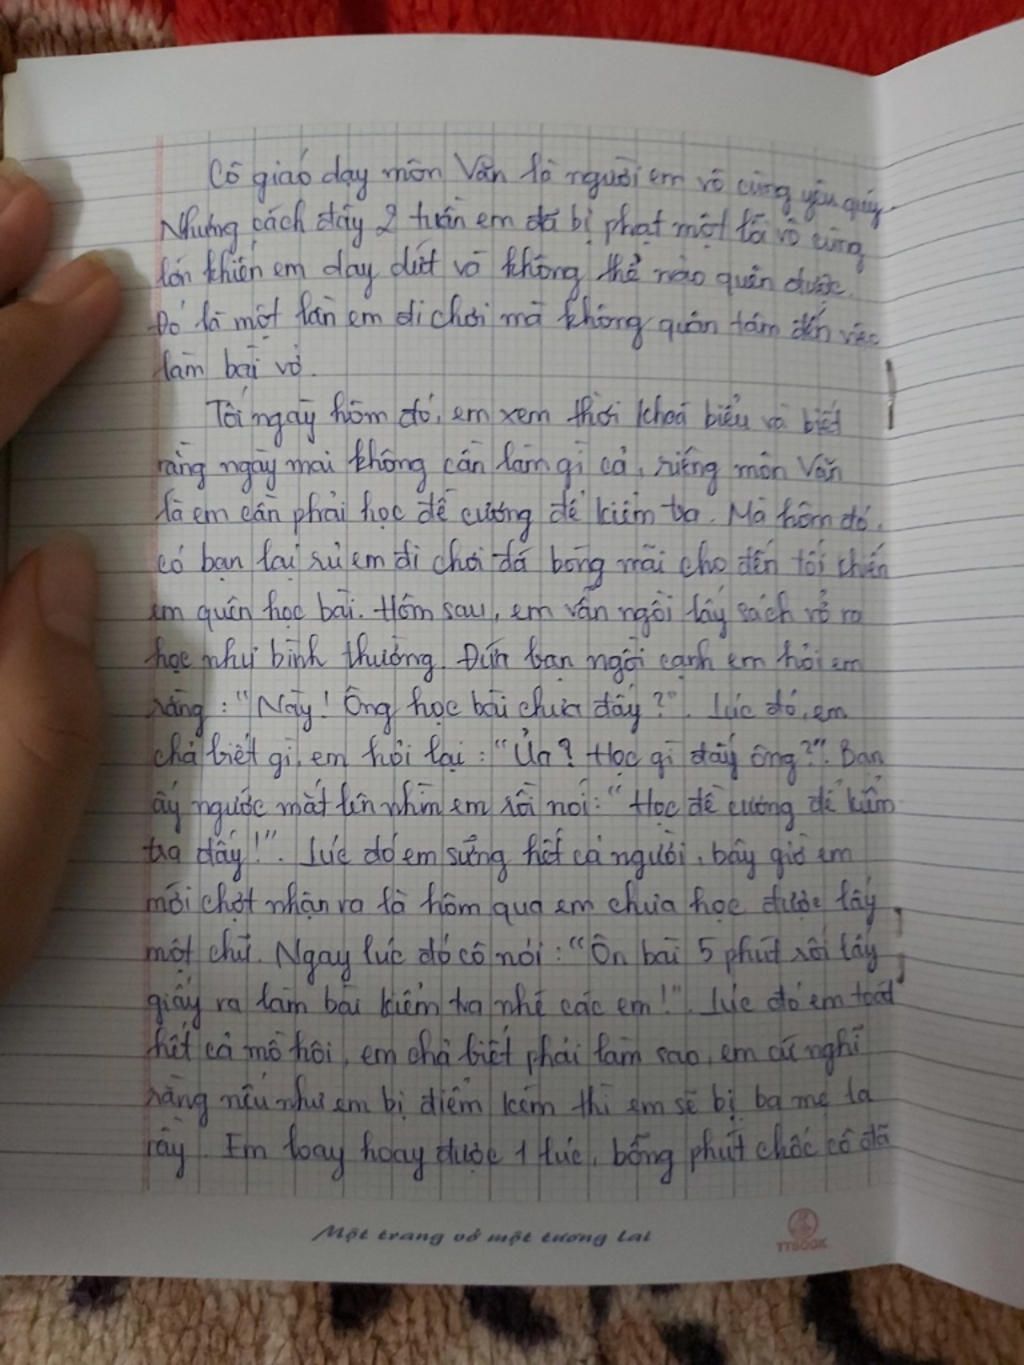 Cô giáo dạy môn Văn là người em vô cùng yêu quý.
Nhưng cách đây 2 tuần em đã bị phạt một lỗi vô cùng
lớn khiến em day dứt và không thể nào quên được.
Đó là một lần em đi chơi mà không quan tâm đến việc
làm bài vở.
Tối ngày hôm đó, em xem thời khoá biểu và biết
rằng ngày mai không cần làm gì cả, riêng môn Văn
là em cần phải học đề cương để kiểm tra. Mà hôm đó,
có bạn lại rủ em đi chơi đá bóng mãi cho đến tối khiến
em quên học bài. Hôm sau, em vẫn ngồi lấy sách vở ra
học như bình thường. Đứa bạn ngồi cạnh em hỏi em
rằng: "Này! Ông học bài chưa đấy?". Lúc đó, em
chả biết gì, em hỏi lại: "Ủa? Học gì đấy ông?". Bạn
ấy ngước mắt lên nhìn em rồi nói: "Học đề cương để kiểm
tra đấy!". Lúc đó em sững hết cả người, bây giờ em
mới chợt nhận ra là hôm qua em chưa học được lấy
một chữ. Ngay lúc đó cô nói: "Ôn bài 5 phút rồi lấy
giấy ra làm bài kiểm tra nhé các em!". Lúc đó em toát
hết cả mồ hôi, em chả biết phải làm sao, em cứ nghĩ
rằng nếu như em bị điểm kém thì em sẽ bị ba mẹ la
rầy. Em loay hoay được 1 lúc, bỗng phút chốc cô đã
Một trang vở một tương lai
TTBOOK